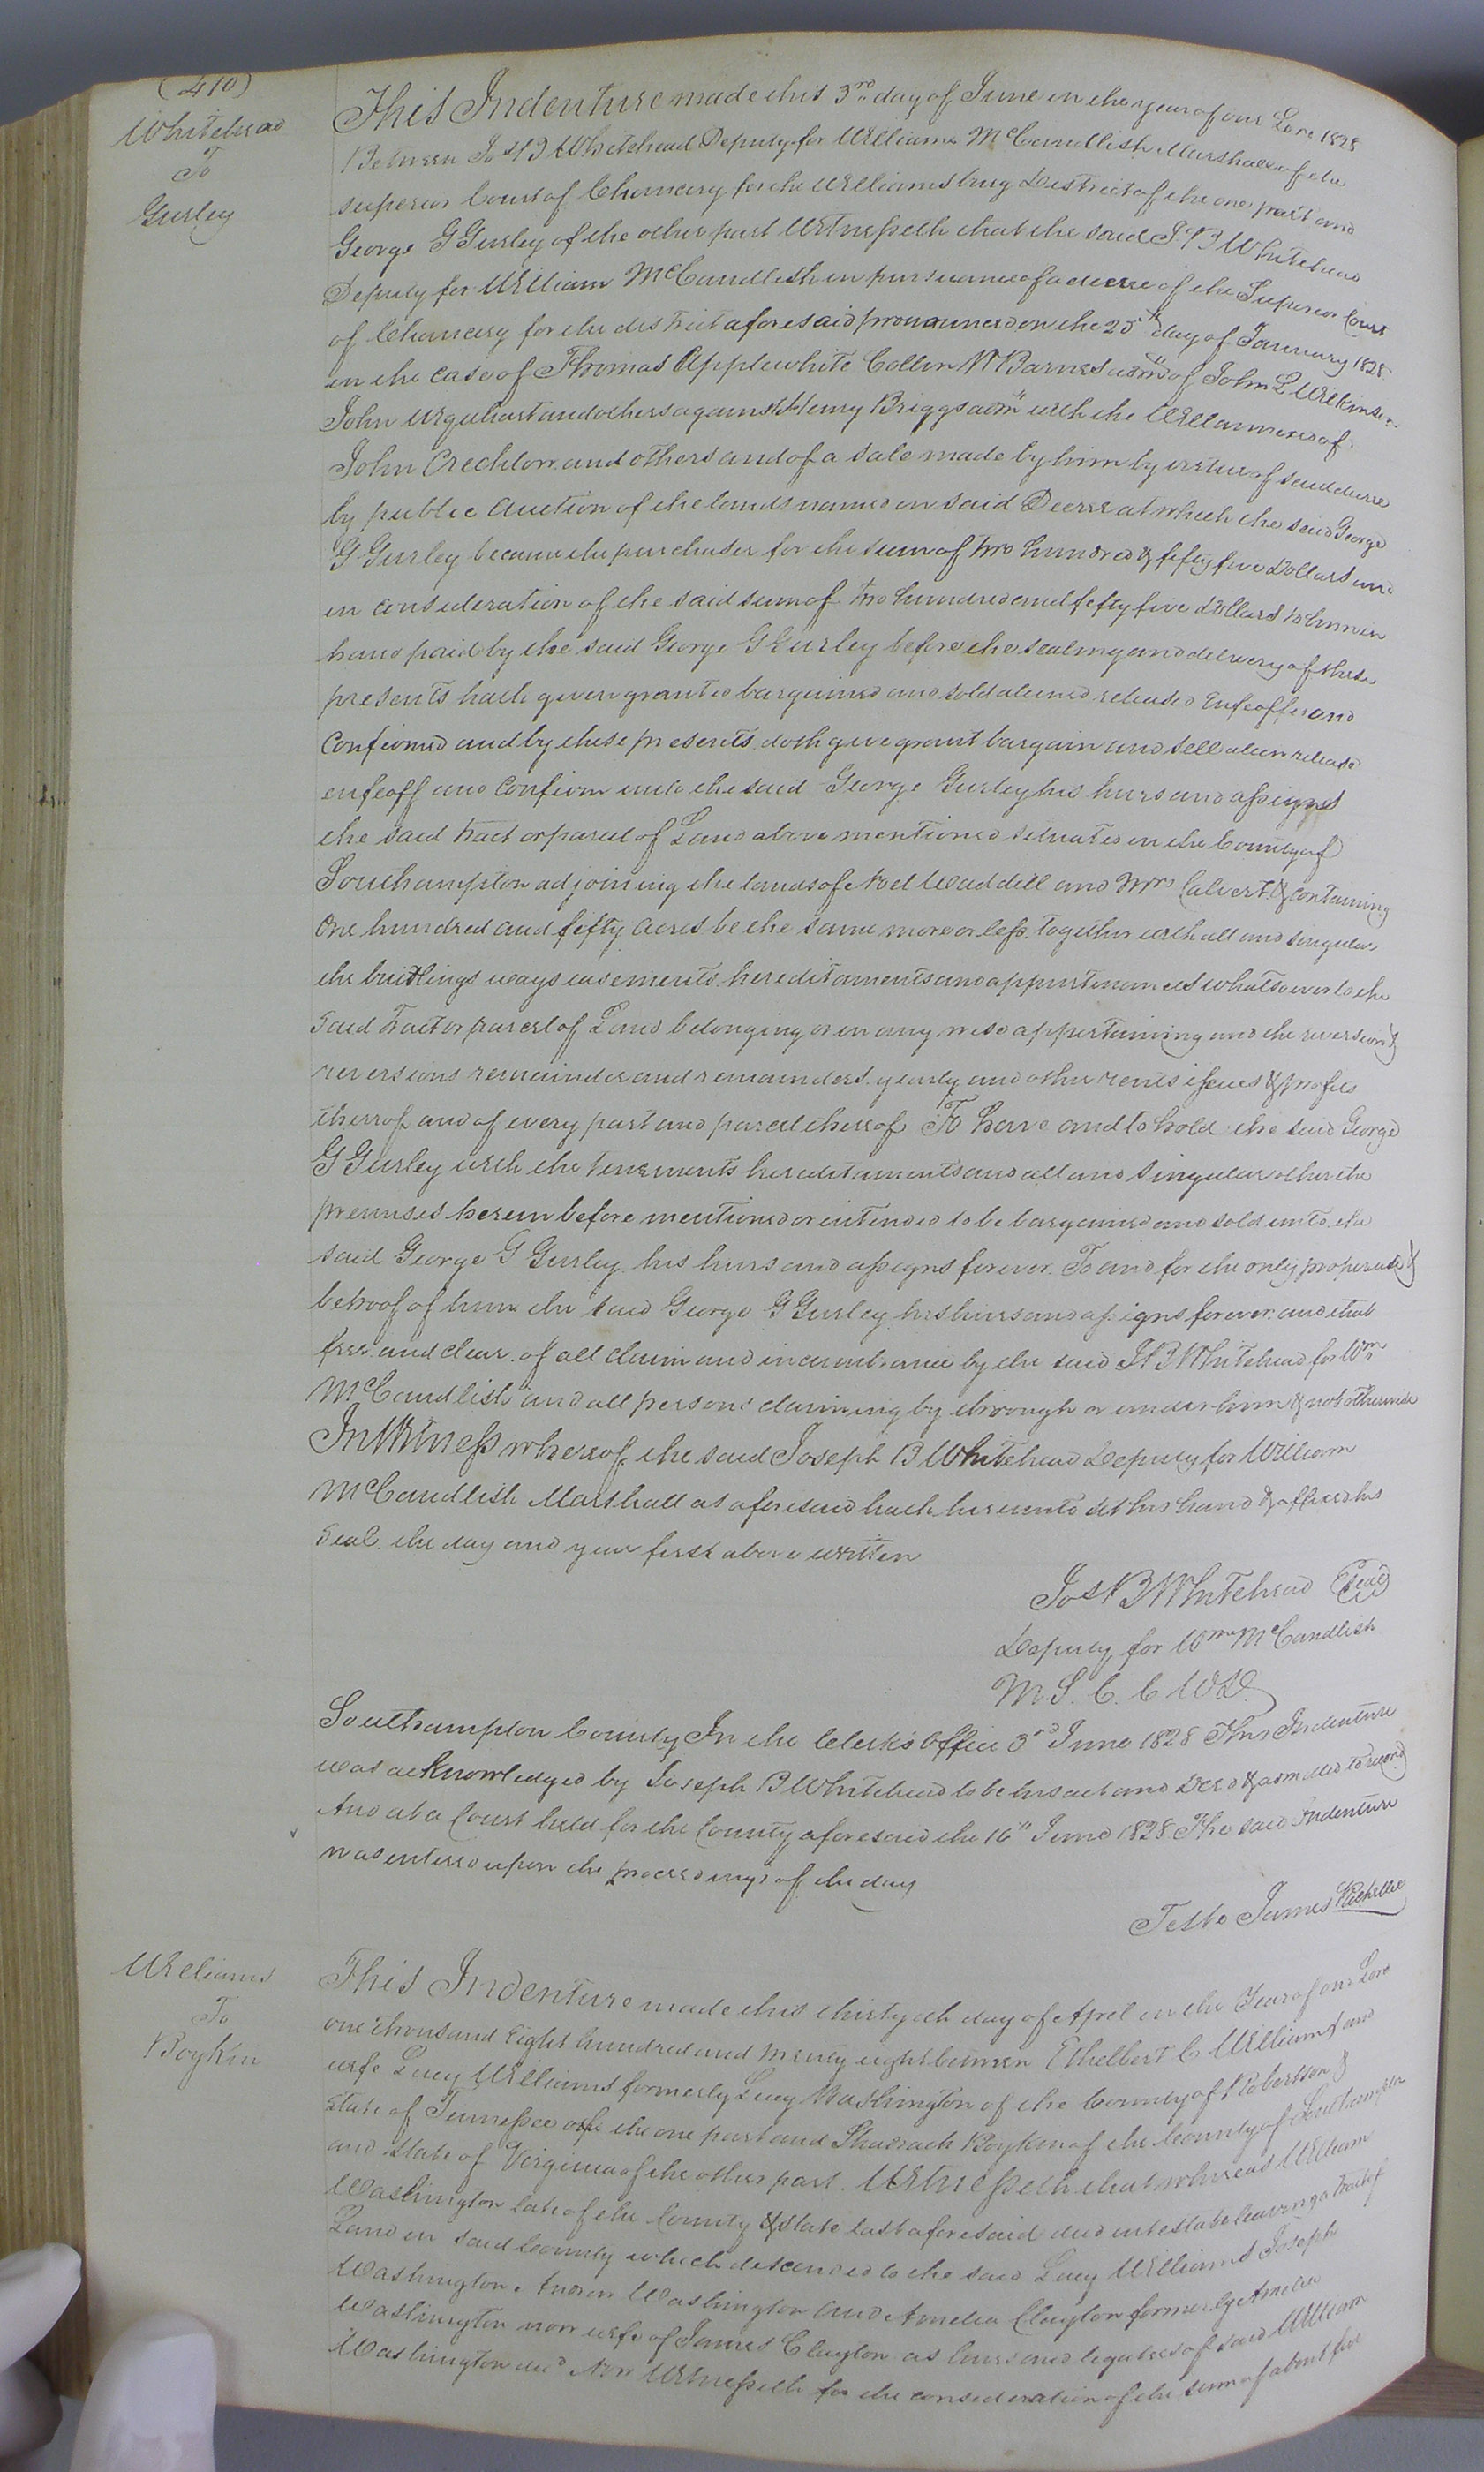 (410)
Whitehead
To
Gurley
This Indenture made this 3rd day of June in the year of our Lord 1828
Between Jos B Whitehead Deputy for William McCandlish Marshall of the
superior Court of Chancery for the Williamsburg District of the one part and
George G Gurley of the other part Witnesseth that the said J. B Whitehead
Deputy for William McCandlish in pursuance of a decree of the Superior Court
of Chancery for the district aforesaid pronounced on the 25th day of January 1828
in the case of Thomas Applewhite Collin W Barnes admr of John L Wilkinson
John Urquhart and others against Henry Briggs admr with the Will annexed of
John Crechlow and others and of a sale made by him by virtue of said decree
by public auction of the lands named in said Decree at which the said George
G Gurley became the purchaser for the sum of two hundred & fifty five Dollars and
in consideration of the said sum of two hundred and fifty five dollars to him in
hand paid by the said George G Gurley before the sealing and delivery of these
presents hath given granted bargained and sold aliened released Enfeoffed and
Confirmed and by these presents doth give grant bargain and sell alien release
enfeoff and Confirm unto the said George Gurley his heirs and assigns
the said tract or parcel of Land above mentioned situated in the County of
Southampton adjoining the lands of Noel Waddell and Mrs Calvert & containing
One hundred and fifty acres be the same more or less together with all and singular
the buildings ways easements hereditaments and appurtenances whatsoever to the
said tract or parcel of Land belonging or in any wise appertaining and the reversion &
reversions remainder and remainders yearly and other rents issues & profits
thereof and of every part and parcel thereof To have and to hold the said George
G Gurley with the tenements hereditaments and all and singular other the
premises herein before mentioned or intended to be bargained and sold unto the
said George G Gurley his heirs and assigns forever. To and for the only proper use &
behoof of him the said George G Gurley his heirs and assigns forever and that
free and clear of all claim and incumbrance by the said J B Whitehead for Wm
McCandlish and all persons claiming by through or under him & not otherwise
In Witness whereof the said Joseph B Whitehead Deputy for William
McCandlish Marshall as aforesaid hath hereunto set his hand & affixed his
Seal the day and year first above written
Jos B Whitehead (Seal)
Deputy for Wm McCandlish
M. S. C. C W D
Southampton County In the Clerk's Office 3rd June 1828 This Indenture
was acknowledged by Joseph B Whitehead to be his act and Deed & admitted to record
And at a Court held for the County aforesaid the 16th June 1828 The said Indenture
was entered upon the proceedings of the day
Teste James Rochelle
Williams
To
Boykin
This Indenture made this thirtyeth day of April in the Year of our Lord
one thousand Eight hundred and twenty eight between Ethelbert C Williams and
wife Lucy Williams formerly Lucy Washington of the County of Robertson &
State of Tennessee of the one part and Shadrach Boykin of the County of Southampton
and State of Virginia of the other part. Witnesseth that whereas William
Washington late of the County & State last aforesaid died intestate leaving a tract of
Land in said County which descended to the said Lucy Williams Joseph
Washington, Andrew Washington and Amelia Clayton formerly Amelia
Washington now wife of James Clayton as heirs and legatees of said William
Washington decd Now Witnesseth for the consideration of the sum of about five